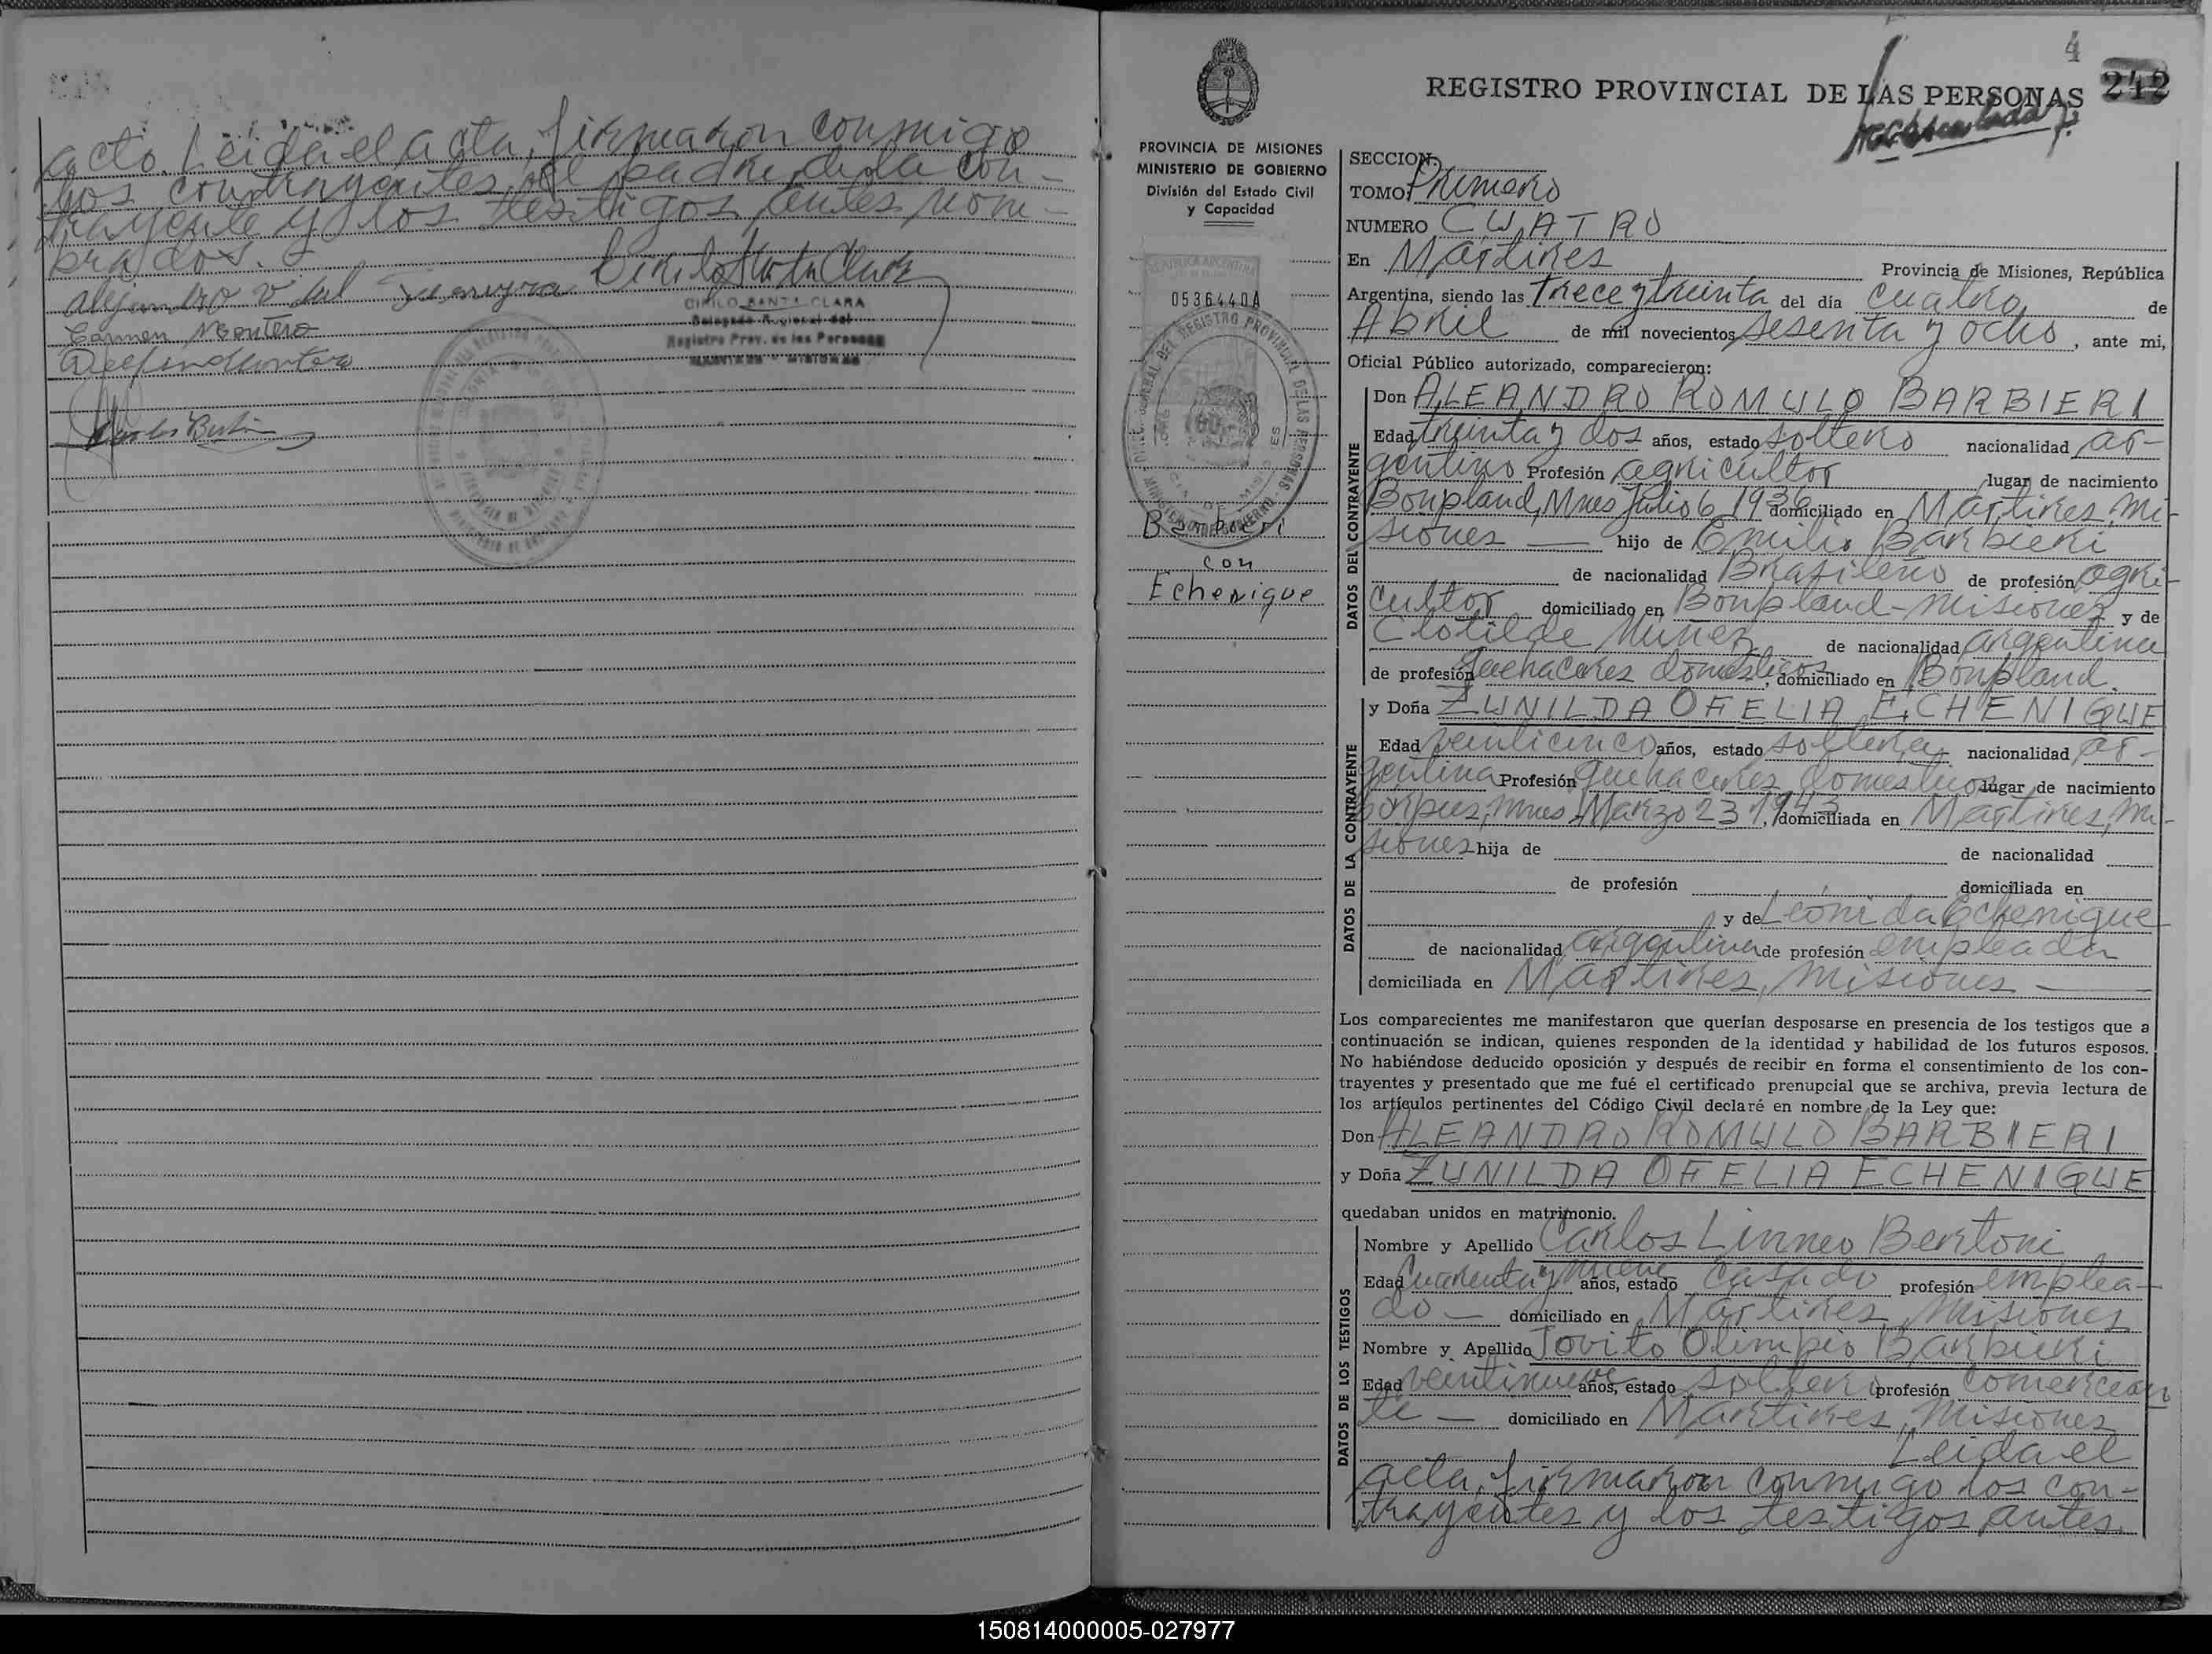 acto. Leida el acta, firmaron conmigo
los contrayentes, el padre de la con-
trayente y los testigos antes nom-
brados.
CIRILO SANTA CLARA
Delegado Regional del
Registro Prov. de las Personas
MARTIRES - MISIONES
Carmen Montero
Delfin Montero
4
242
REGISTRO PROVINCIAL DE LAS PERSONAS
PROVINCIA DE MISIONES
MINISTERIO DE GOBIERNO
División del Estado Civil
y Capacidad
0536440A
Barbieri
con
Echenique
SECCION:
TOMO: Primero
NUMERO CUATRO
En Martires Provincia de Misiones, República
Argentina, siendo las Trece y treinta del día cuatro de
Abril de mil novecientos sesenta y ocho, ante mi,
Oficial Público autorizado, comparecieron:
DATOS DEL CONTRAYENTE
Don ALEANDRO ROMULO BARBIERI
Edad treinta y dos años, estado soltero nacionalidad ar-
gentino Profesión agricultor lugar de nacimiento
Bonpland, Mnes Julio 6 1936 domiciliado en Martires, Mi-
siones — hijo de Emilio Barbieri
de nacionalidad Brasileño de profesión agri-
cultor domiciliado en Bonpland - Misiones y de
Clotilde Nuñez de nacionalidad argentina
de profesión quehaceres domesticos, domiciliado en Bonpland.
DATOS DE LA CONTRAYENTE
y Doña ZUNILDA OFELIA ECHENIQUE
Edad veinticinco años, estado soltera, nacionalidad ar-
gentina Profesión quehaceres domesticos lugar de nacimiento
Corpus, Mnes Marzo 23 1943, domiciliada en Martires, Mi-
siones hija de de nacionalidad
de profesión domiciliada en
y de Leonida Echenique
de nacionalidad argentina de profesión empleada
domiciliada en Martires, Misiones —
Los comparecientes me manifestaron que querían desposarse en presencia de los testigos que a
continuación se indican, quienes responden de la identidad y habilidad de los futuros esposos.
No habiéndose deducido oposición y después de recibir en forma el consentimiento de los con-
trayentes y presentado que me fué el certificado prenupcial que se archiva, previa lectura de
los artículos pertinentes del Código Civil declaré en nombre de la Ley que:
Don ALEANDRO ROMULO BARBIERI
y Doña ZUNILDA OFELIA ECHENIQUE
quedaban unidos en matrimonio.
DATOS DE LOS TESTIGOS
Nombre y Apellido Carlos Linneo Bertoni
Edad Cuarenta y nueve años, estado casado profesión emplea-
do — domiciliado en Martires, Misiones
Nombre y Apellido Jovito Olimpio Barbieri
Edad veintinueve años, estado soltero profesión comercian
te — domiciliado en Martires, Misiones
Leida el
acta, firmaron conmigo los con-
trayentes y los testigos antes
150814000005-027977